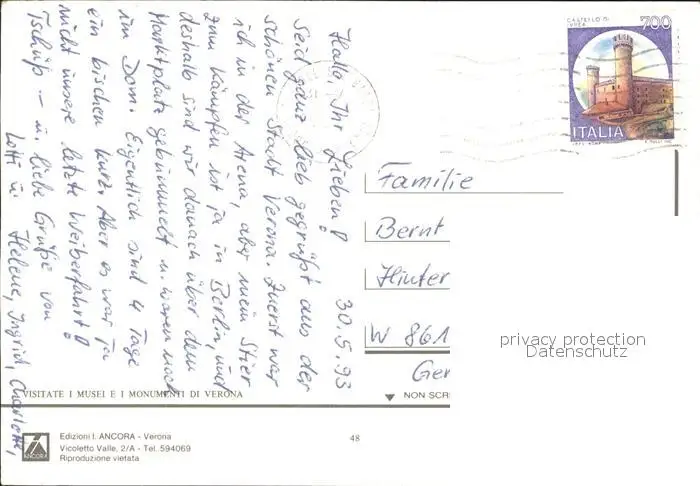 Hallo, Ihr Lieben! 30.5.93
Seid ganz lieb gegrüßt aus der
schönen Stadt Verona. Zuerst war
ich in der Arena, aber mein Stier
zum Kämpfen ist ja in Berlin, und
deshalb sind wir danach über den
Marktplatz gebummelt u. waren noch
im Dom. Eigentlich sind 4 Tage
ein bischen kurz. Aber es war ja
nicht unsere letzte Weiberfahrt!
Tschüß – u. liebe Grüße von
Lotti u. Helene, Ingrid, Charlotte,
CASTELLO DI
IVREA
700
ITALIA
Familie
Bernt
Hinter
W 861
Ger
privacy protection
Datenschutz
VISITATE I MUSEI E I MONUMENTI DI VERONA
NON SCRI
ANCORA
Edizioni I. ANCORA - Verona
Vicoletto Valle, 2/A - Tel. 594069
Riproduzione vietata
48